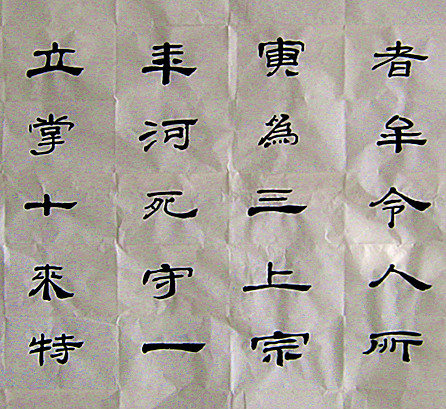 者牟令人所
寅為三上宗
年河死守一
立掌十來特